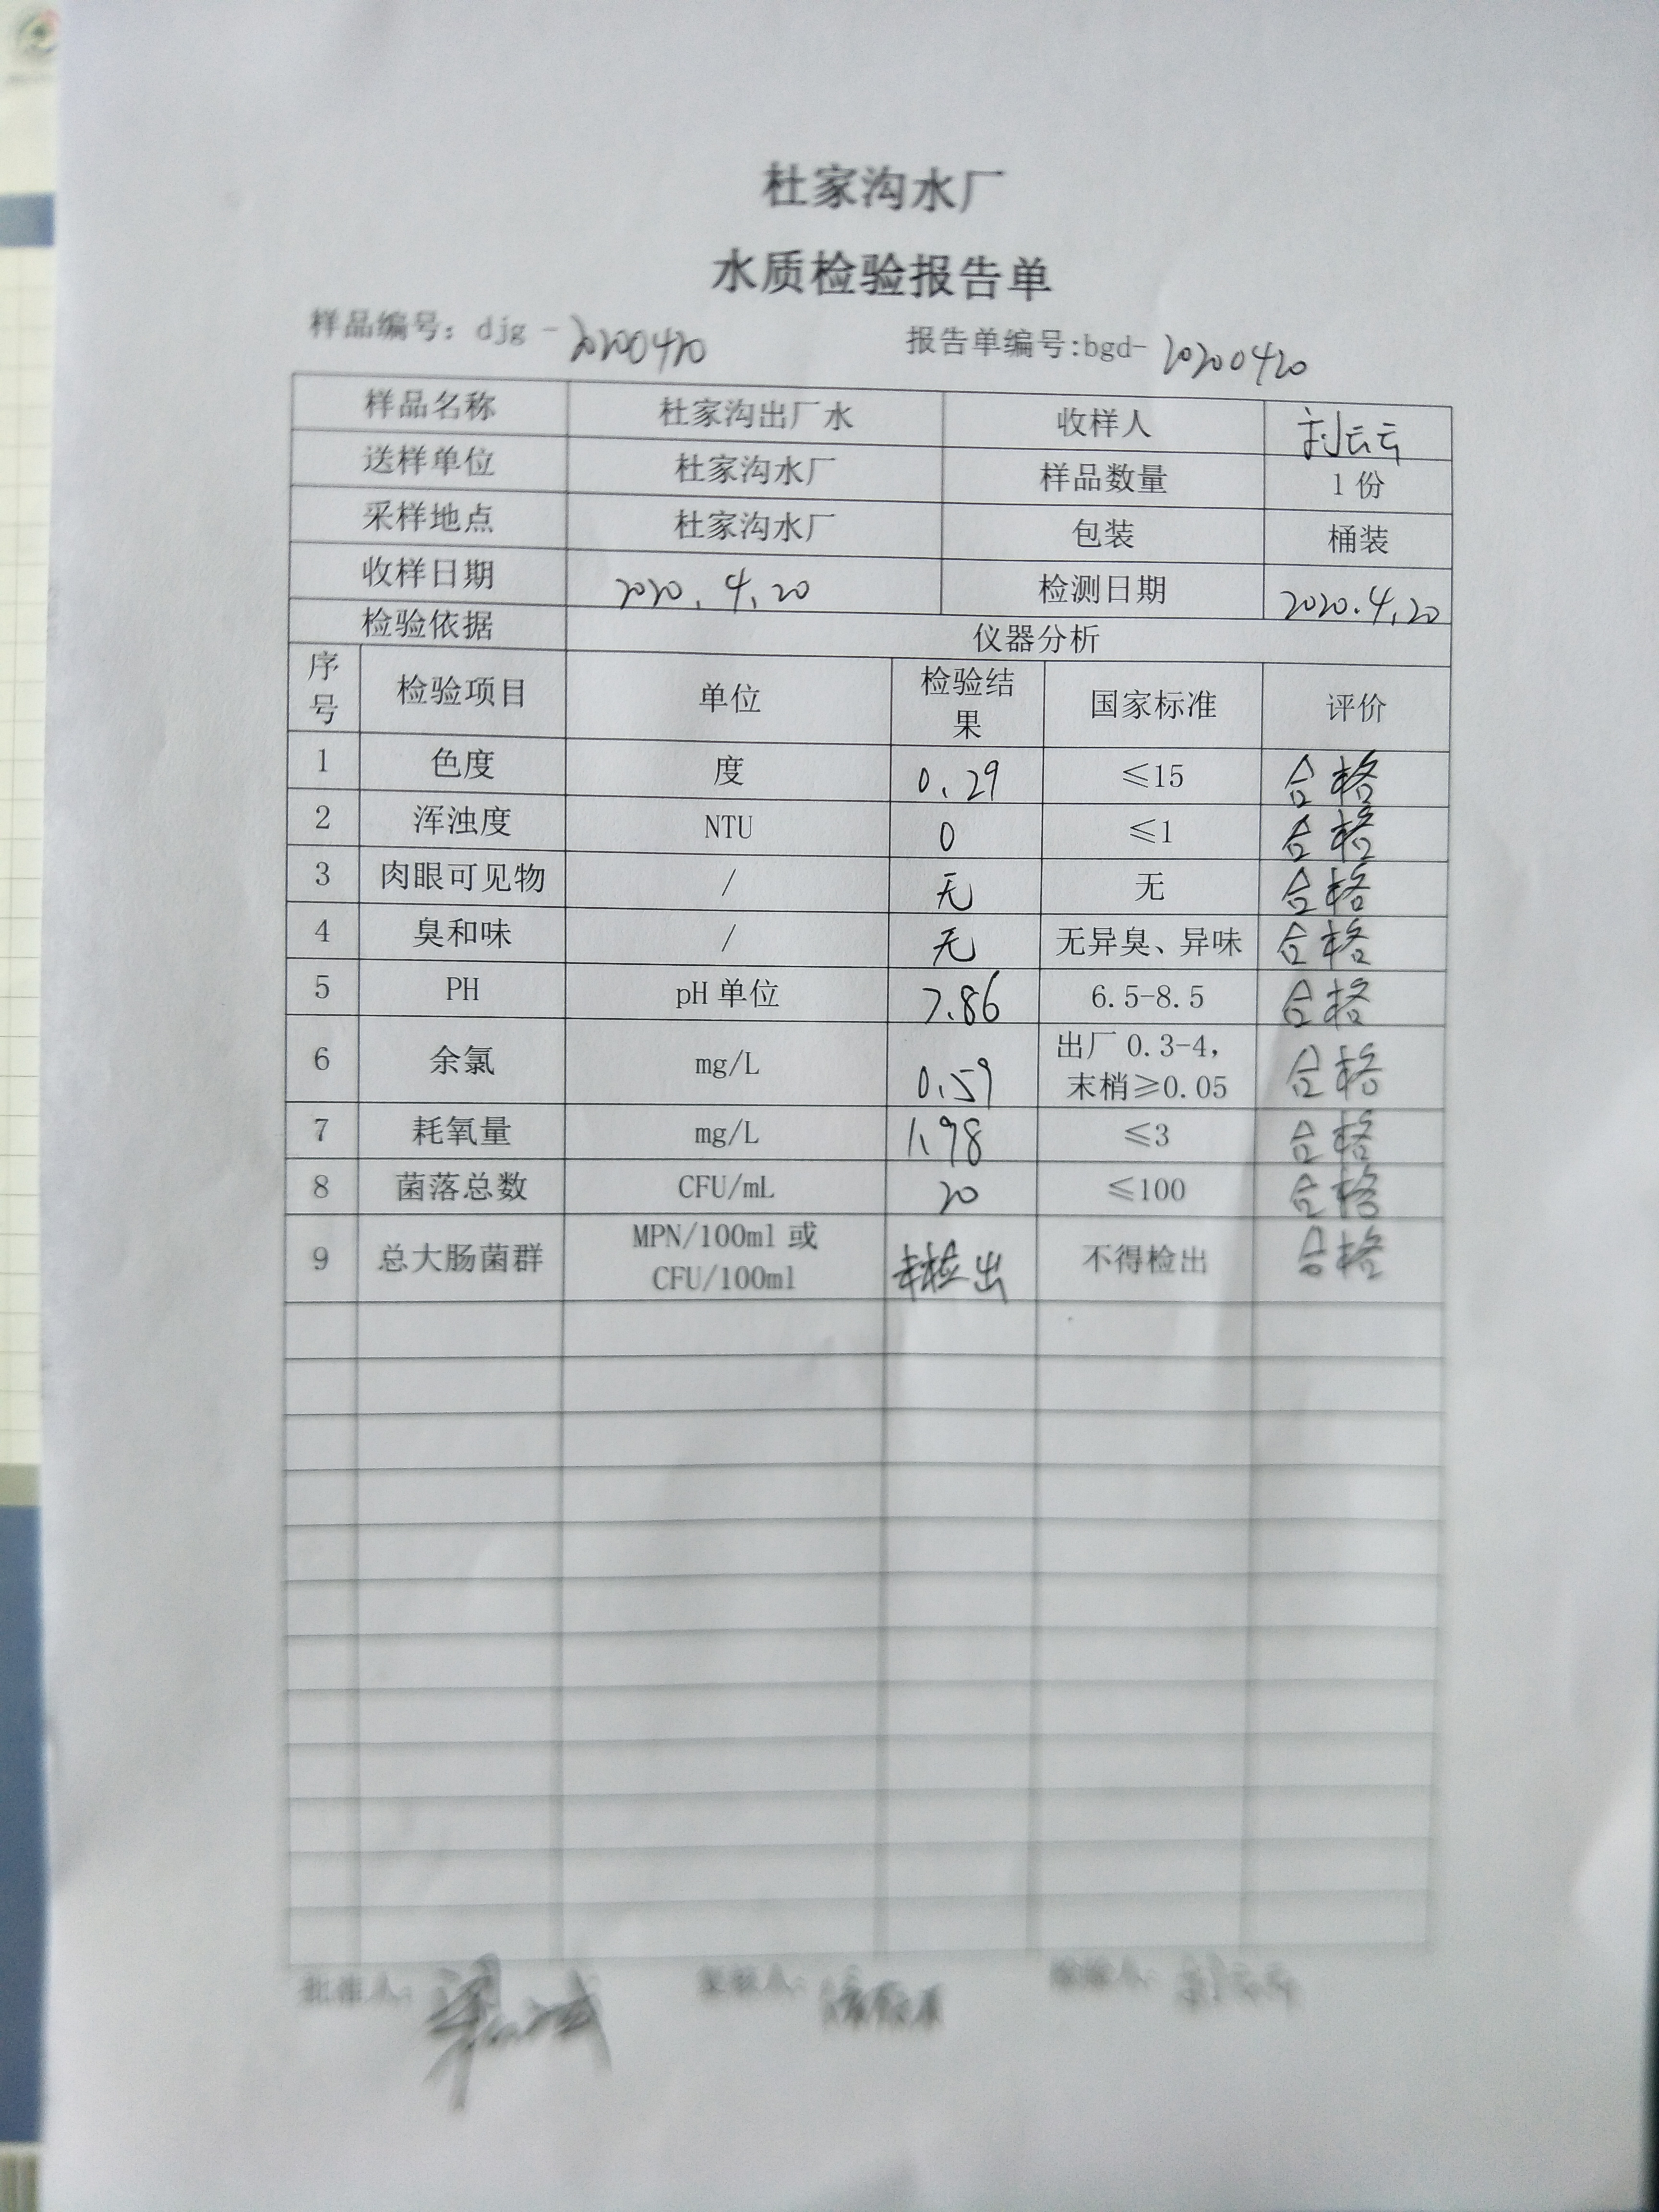 杜家沟水厂
水质检验报告单
样品编号：djg-20200420 报告单编号:bgd-20200420
样品名称 杜家沟出厂水 收样人 刘云云
送样单位 杜家沟水厂 样品数量 1份
采样地点 杜家沟水厂 包装 桶装
收样日期 2020.4.20 检测日期 2020.4.20
检验依据 仪器分析
序号 检验项目 单位 检验结果 国家标准 评价
1 色度 度 0.29 ≤15 合格
2 浑浊度 NTU 0 ≤1 合格
3 肉眼可见物 / 无 无 合格
4 臭和味 / 无 无异臭、异味 合格
5 PH pH单位 7.86 6.5-8.5 合格
6 余氯 mg/L 0.59 出厂0.3-4，末梢≥0.05 合格
7 耗氧量 mg/L 1.98 ≤3 合格
8 菌落总数 CFU/mL 20 ≤100 合格
9 总大肠菌群 MPN/100ml或CFU/100ml 未检出 不得检出 合格
批准人： 复核人： 检验人：刘云云